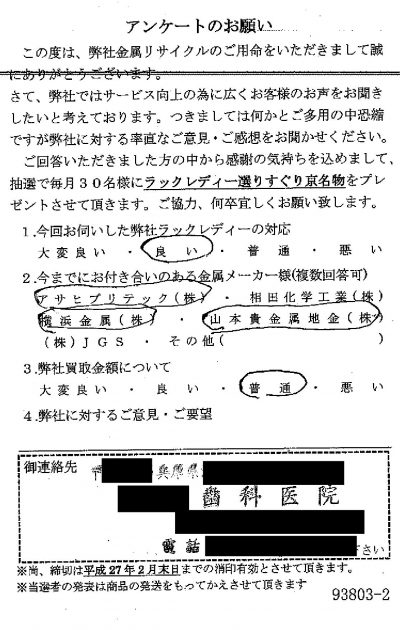 アンケートのお願い
この度は、弊社金属リサイクルのご用命をいただきまして誠
にありがとうございます。
さて、弊社ではサービス向上の為に広くお客様のお声をお聞き
したいと考えております。つきましては何かとご多用の中恐縮
ですが弊社に対する率直なご意見・ご感想をお聞かせください。
ご回答いただきました方の中から感謝の気持ちを込めまして、
抽選で毎月30名様にラックレディー選りすぐり京名物をプレ
ゼントさせて頂きます。ご協力、何卒宜しくお願い致します。
1.今回お伺いした弊社ラックレディーの対応
大変良い・良い・普通・悪い
2.今までにお付き合いのある金属メーカー様(複数回答可)
アサヒプリテック(株)・相田化学工業(株)
横浜金属(株)・山本貴金属地金(株)
(株)JGS・その他( )
3.弊社買取金額について
大変良い・良い・普通・悪い
4.弊社に対するご意見・ご要望
御連絡先 〒 兵庫県
歯科医院
電話 ださい
※尚、締切は平成27年2月末日までの消印有効とさせて頂きます。
※当選者の発表は商品の発送をもってかえさせて頂きます
93803-2